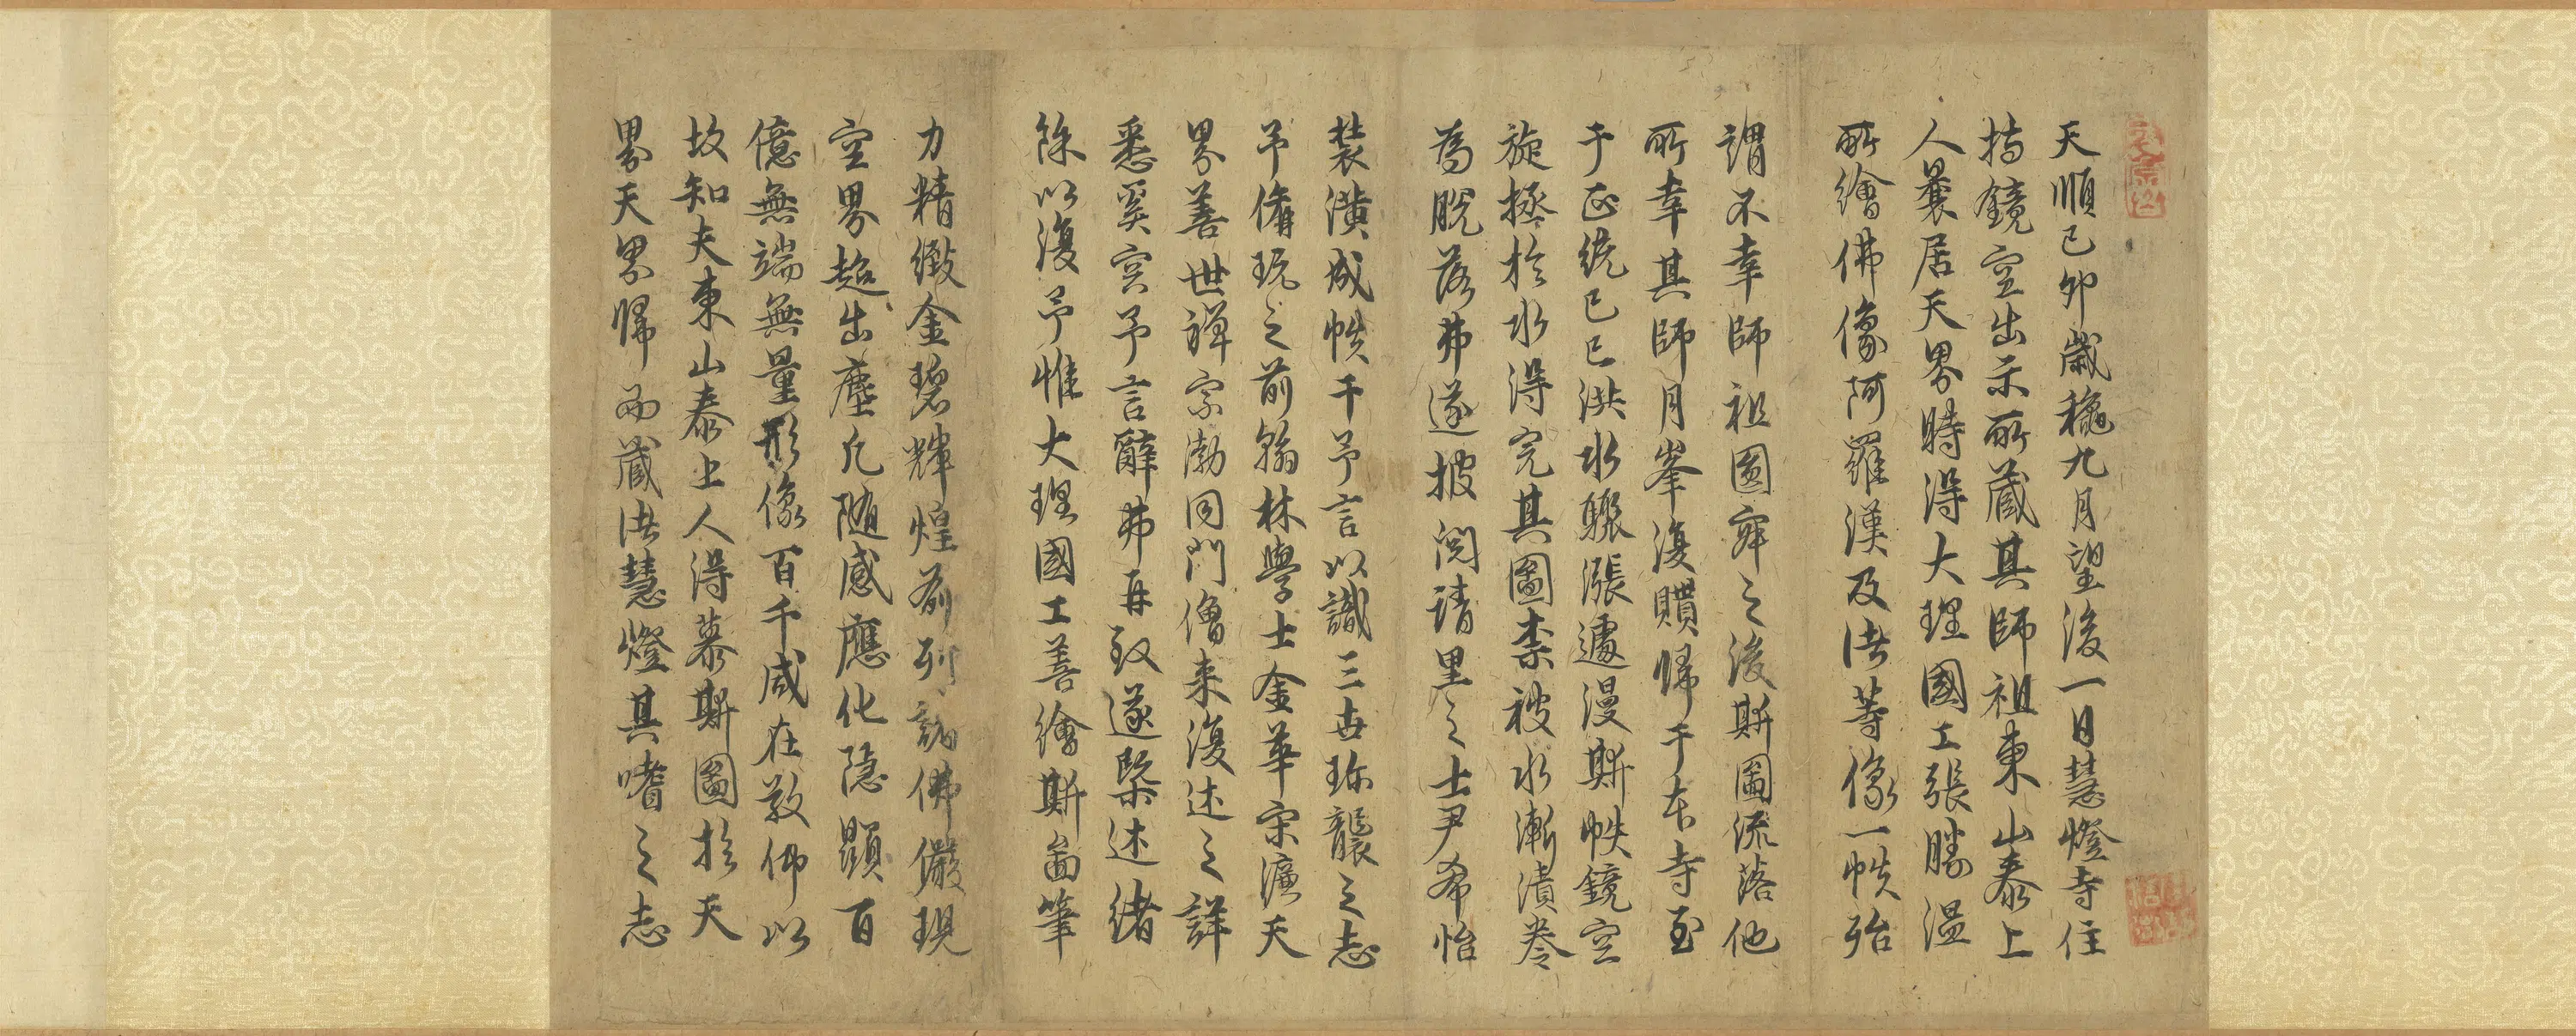 天順己卯歲穐九月望後一日慧燈寺住
持鏡空出示所藏其師祖東山泰上
人曩居天界時得大理國工張勝温
所繪佛像阿羅漢及諸等像一帙殆
謂不幸師祖圓寂之後斯圖流落他
所幸其師月峯復贖帰于本寺至
于正统己巳洪水驟漲遽漫斯帙鏡空
旋拯於水淂完其圖柰被水漸漬卷
為脫落弗遂披閱請里之士尹希怡
裝潢成帙干予言以識三世珎襲之志
予備玩之前翰林學士金華宋濂天
界善世禅宗泐同門僧来復述之詳
悉奚容予言辭弗再致遂槩述緒
餘以復予惟大理國工善繪斯啚筆
力精緻金碧輝煌前列諸佛儼現
空界超出塵凡随感應化隐顕百
億無端無量形像百千咸在敬仰以
故知夫東山泰上人淂慕斯圖於天
界天界帰而藏諸慧燈其嗜之志